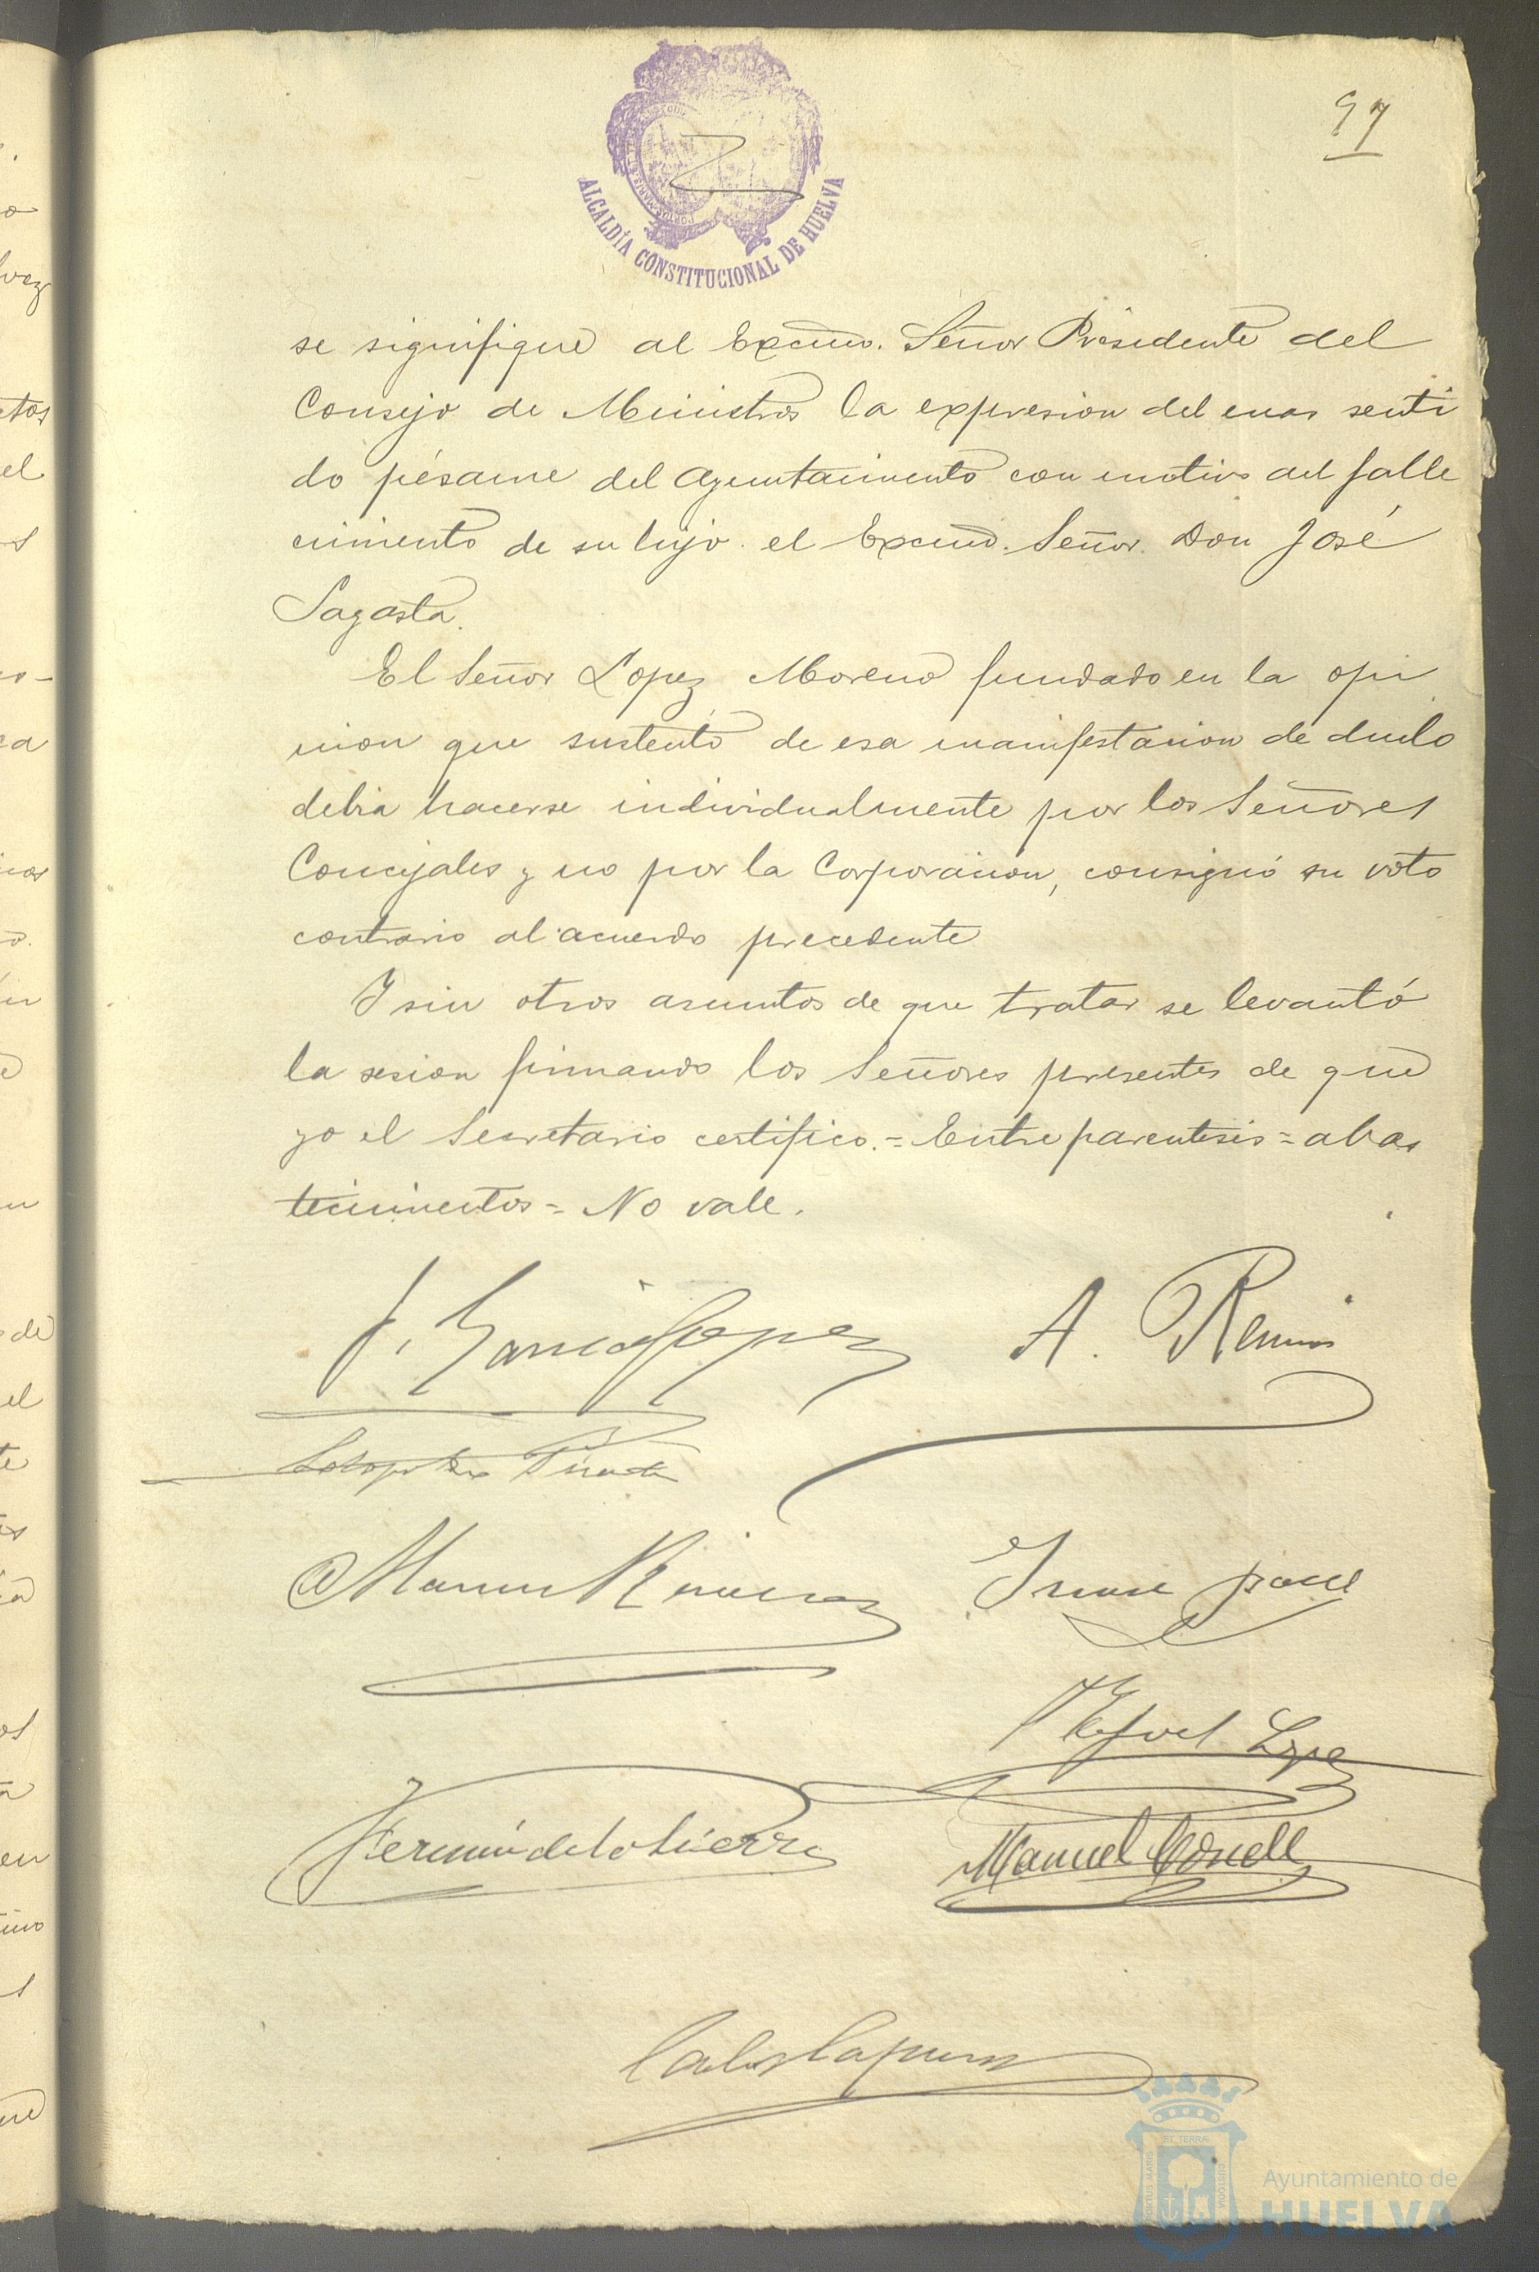 97
ALCALDÍA CONSTITUCIONAL DE HUELVA
se signifique al Excmo. Señor Presidente del
Consejo de Ministros la expresion del mas senti
do pésame del Ayuntamiento con motivo del falle
cimiento de su hijo el Excmo. Señor Don José
Sagasta.
El Señor Lopez Moreno fundado en la opi
nion que sustentó de esa manifestacion de duelo
debia hacerse individualmente por los Señores
Concejales y no por la Corporacion, consignó su voto
contrario al acuerdo precedente
Y sin otros asuntos de que tratar se levantó
la sesion firmando los Señores presentes de que
yo el Secretario certifico.= Entre parentesis = abas
tecimientos = No vale.
J. García Lopez
A.
Manuel
Fermín de la Sierra
Manuel
Ayuntamiento de
HUELVA